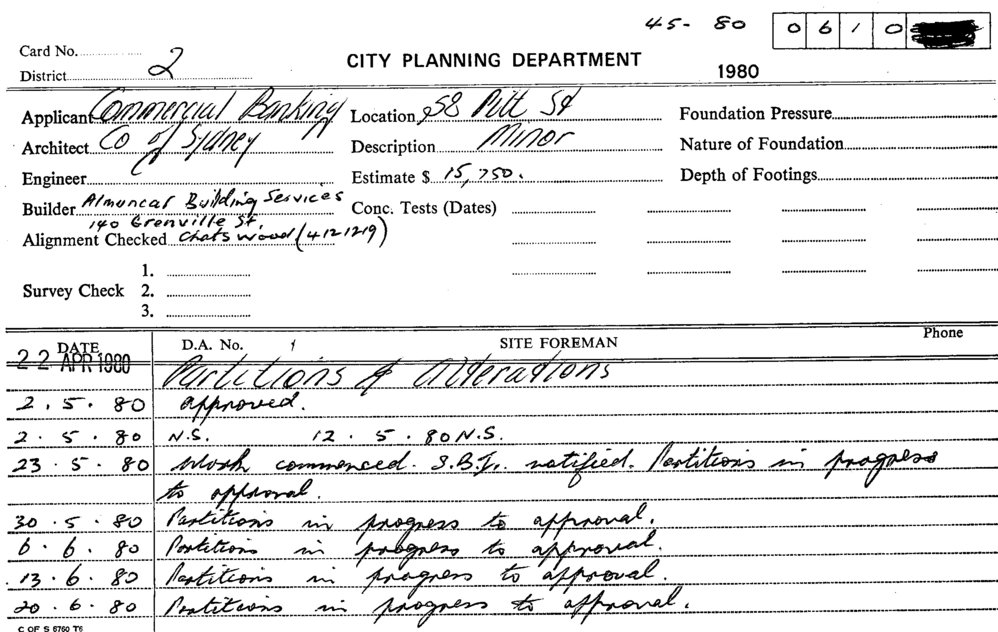 45- 80 0610
Card No.
District 2
CITY PLANNING DEPARTMENT
1980
Applicant Commercial Banking
Location 58 Pitt St
Foundation Pressure
Architect Co of Sydney
Description Minor
Nature of Foundation
Engineer
Estimate $ 15,750.
Depth of Footings
Builder Almuncar Building Services
140 Grenville St.
Conc. Tests (Dates)
Alignment Checked Chatswood (4121219)
1.
Survey Check 2.
3.
DATE D.A. No. SITE FOREMAN Phone
22 APR 1980 Partitions & Alterations
2.5.80 approved.
2.5.80 N.S. 12.5.80 N.S.
23.5.80 Work commenced. S.B.I. notified. Partitions in progress
to approval.
30.5.80 Partitions in progress to approval.
6.6.80 Partitions in progress to approval.
13.6.80 Partitions in progress to approval.
20.6.80 Partitions in progress to approval.
C OF S 6760 T6